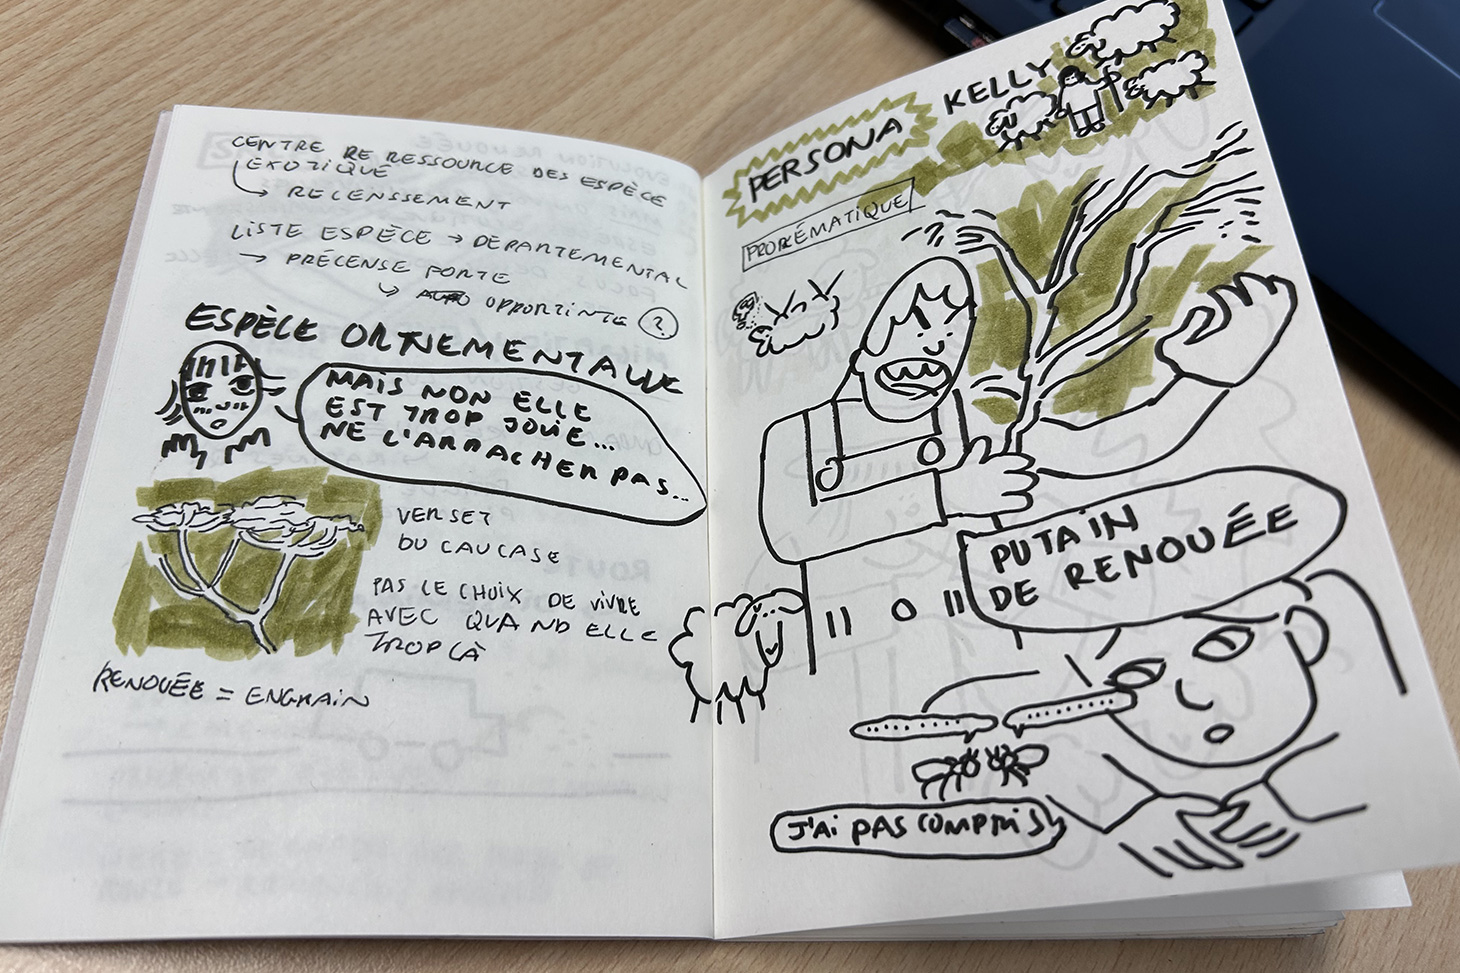 CENTRE RE RESSOURCE DES ESPÈCE
EXOTIQUE
RECENSSEMENT
LISTE ESPÈCE → DÉPARTEMENTAL
→ PRÉCENSE FORTE
OPPORTINTE ?
ESPÈCE ORTNEMENTALLE
MAIS NON ELLE
EST TROP JOLIE...
NE L'ARRACHER PAS...
VERSET
DU CAUCASE
PAS LE CHOIX DE VIVRE
AVEC QUAND ELLE
TROP LÀ
RENOUÉE = ENGRAIN
PERSONA KELLY
PROBLÉMATIQUE
PUTAIN
DE RENOUÉE
J'AI PAS COMPRIS